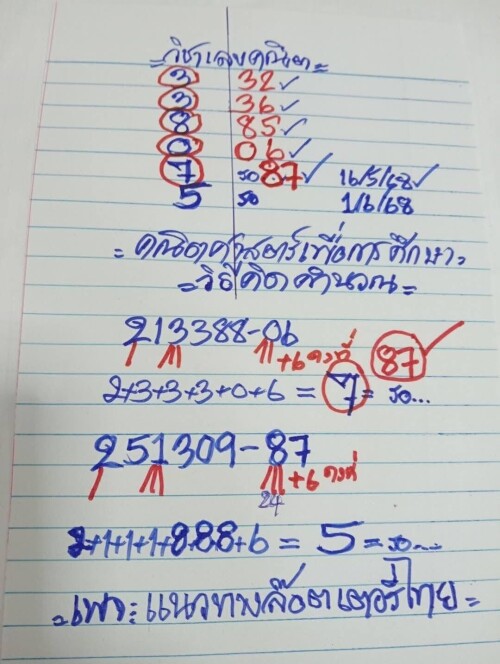 =วิชาเลขคณิต=
3 32✓
3 36✓
8 85✓
0 06✓
7 รอ87✓ 16/5/68✓
5 รอ 1/6/68
=คณิตศาสตร์เพื่อการศึกษา=
=วิธีคิดคำนวณ=
213388-06
+6คงที่ 87✓
2+3+3+3+0+6=7=รอ...
251309-87
+6คงที่
24
2+1+1+1+8+8+8+6=5=รอ...
=เพาะแนวทางล็อตเตอรี่ไทย=